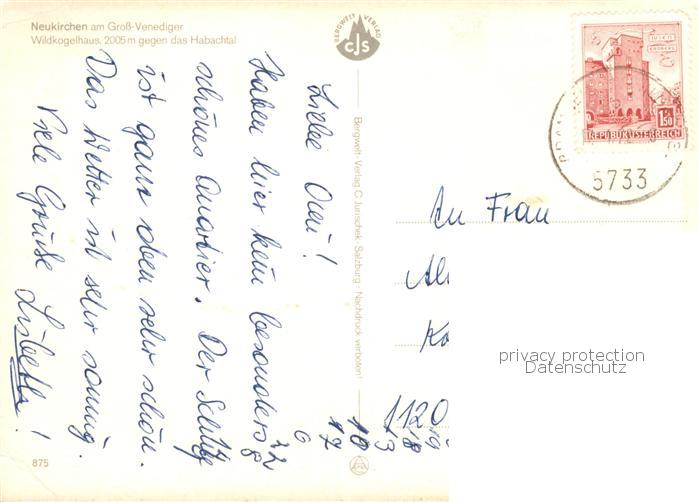 Neukirchen am Groß-Venediger
Wildkogelhaus, 2005 m gegen das Habachtal
BERGWELT VERLAG
CJS
Liebe Omi!
Haben hier kein besonders
schönes Quartier. Der Schlitz
ist ganz oben sehr schön.
Das Wetter ist sehr sonnig.
Viele Grüße Lisbeth!
Bergwelt-Verlag C. Jurischek, Salzburg · Nachdruck verboten!
WIEN
ERDBERG
1.50
REPUBLIK ÖSTERREICH
5733
An Frau
1120
privacy protection
Datenschutz
22
6 8
17 10 13 18 19
875